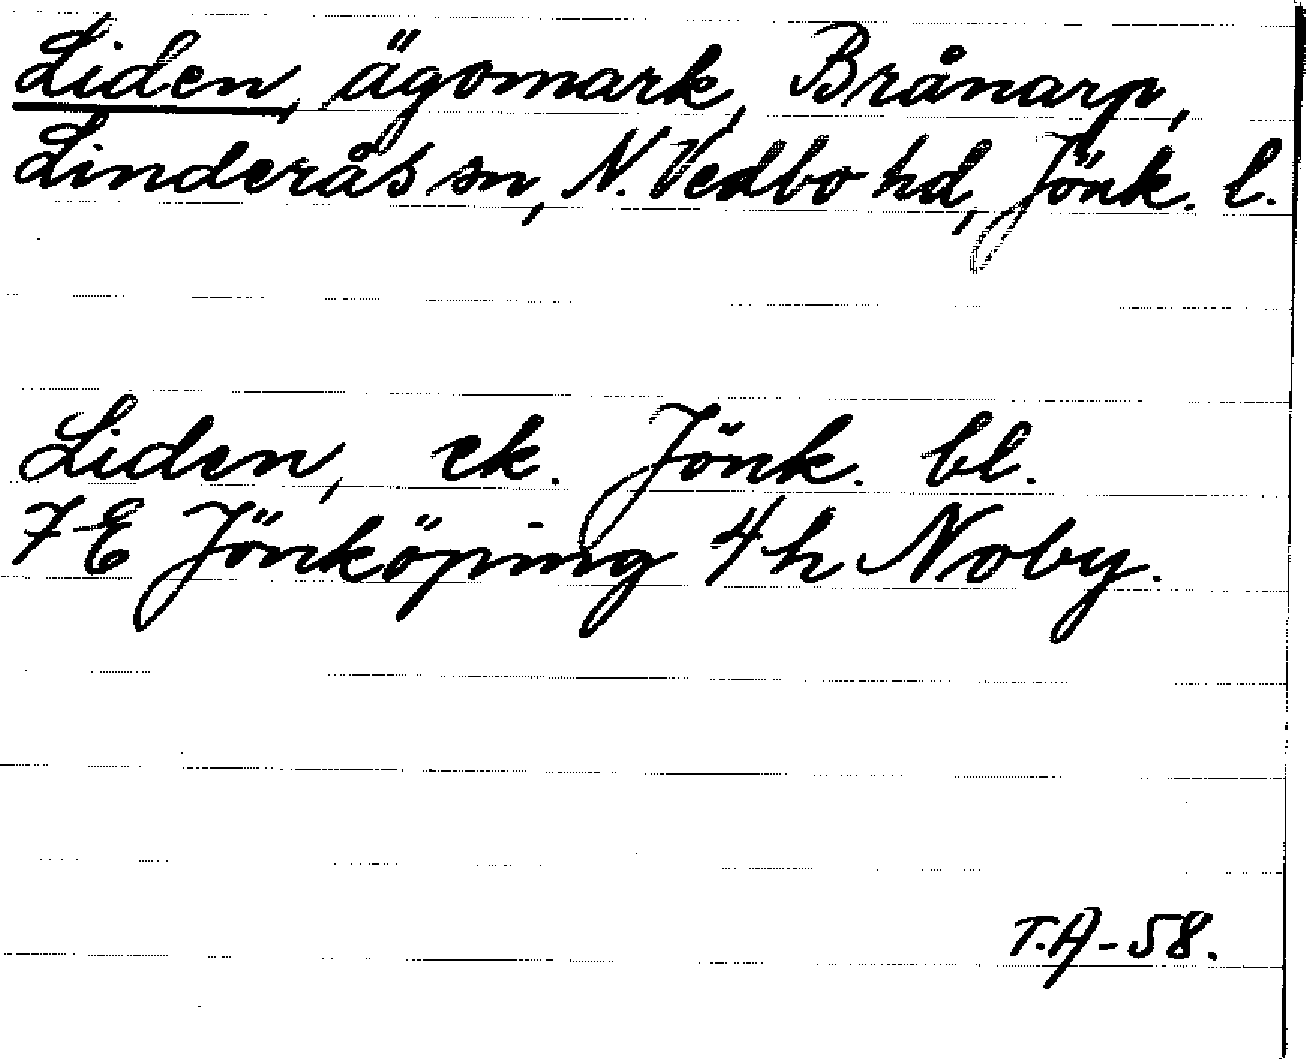 Liden, ägomark, Brånarp,
Linderås sn, N. Vedbo hd, Jönk. l.
Liden, ek. Jönk. bl.
7E Jönköping 4h Noby.
T.A-58.